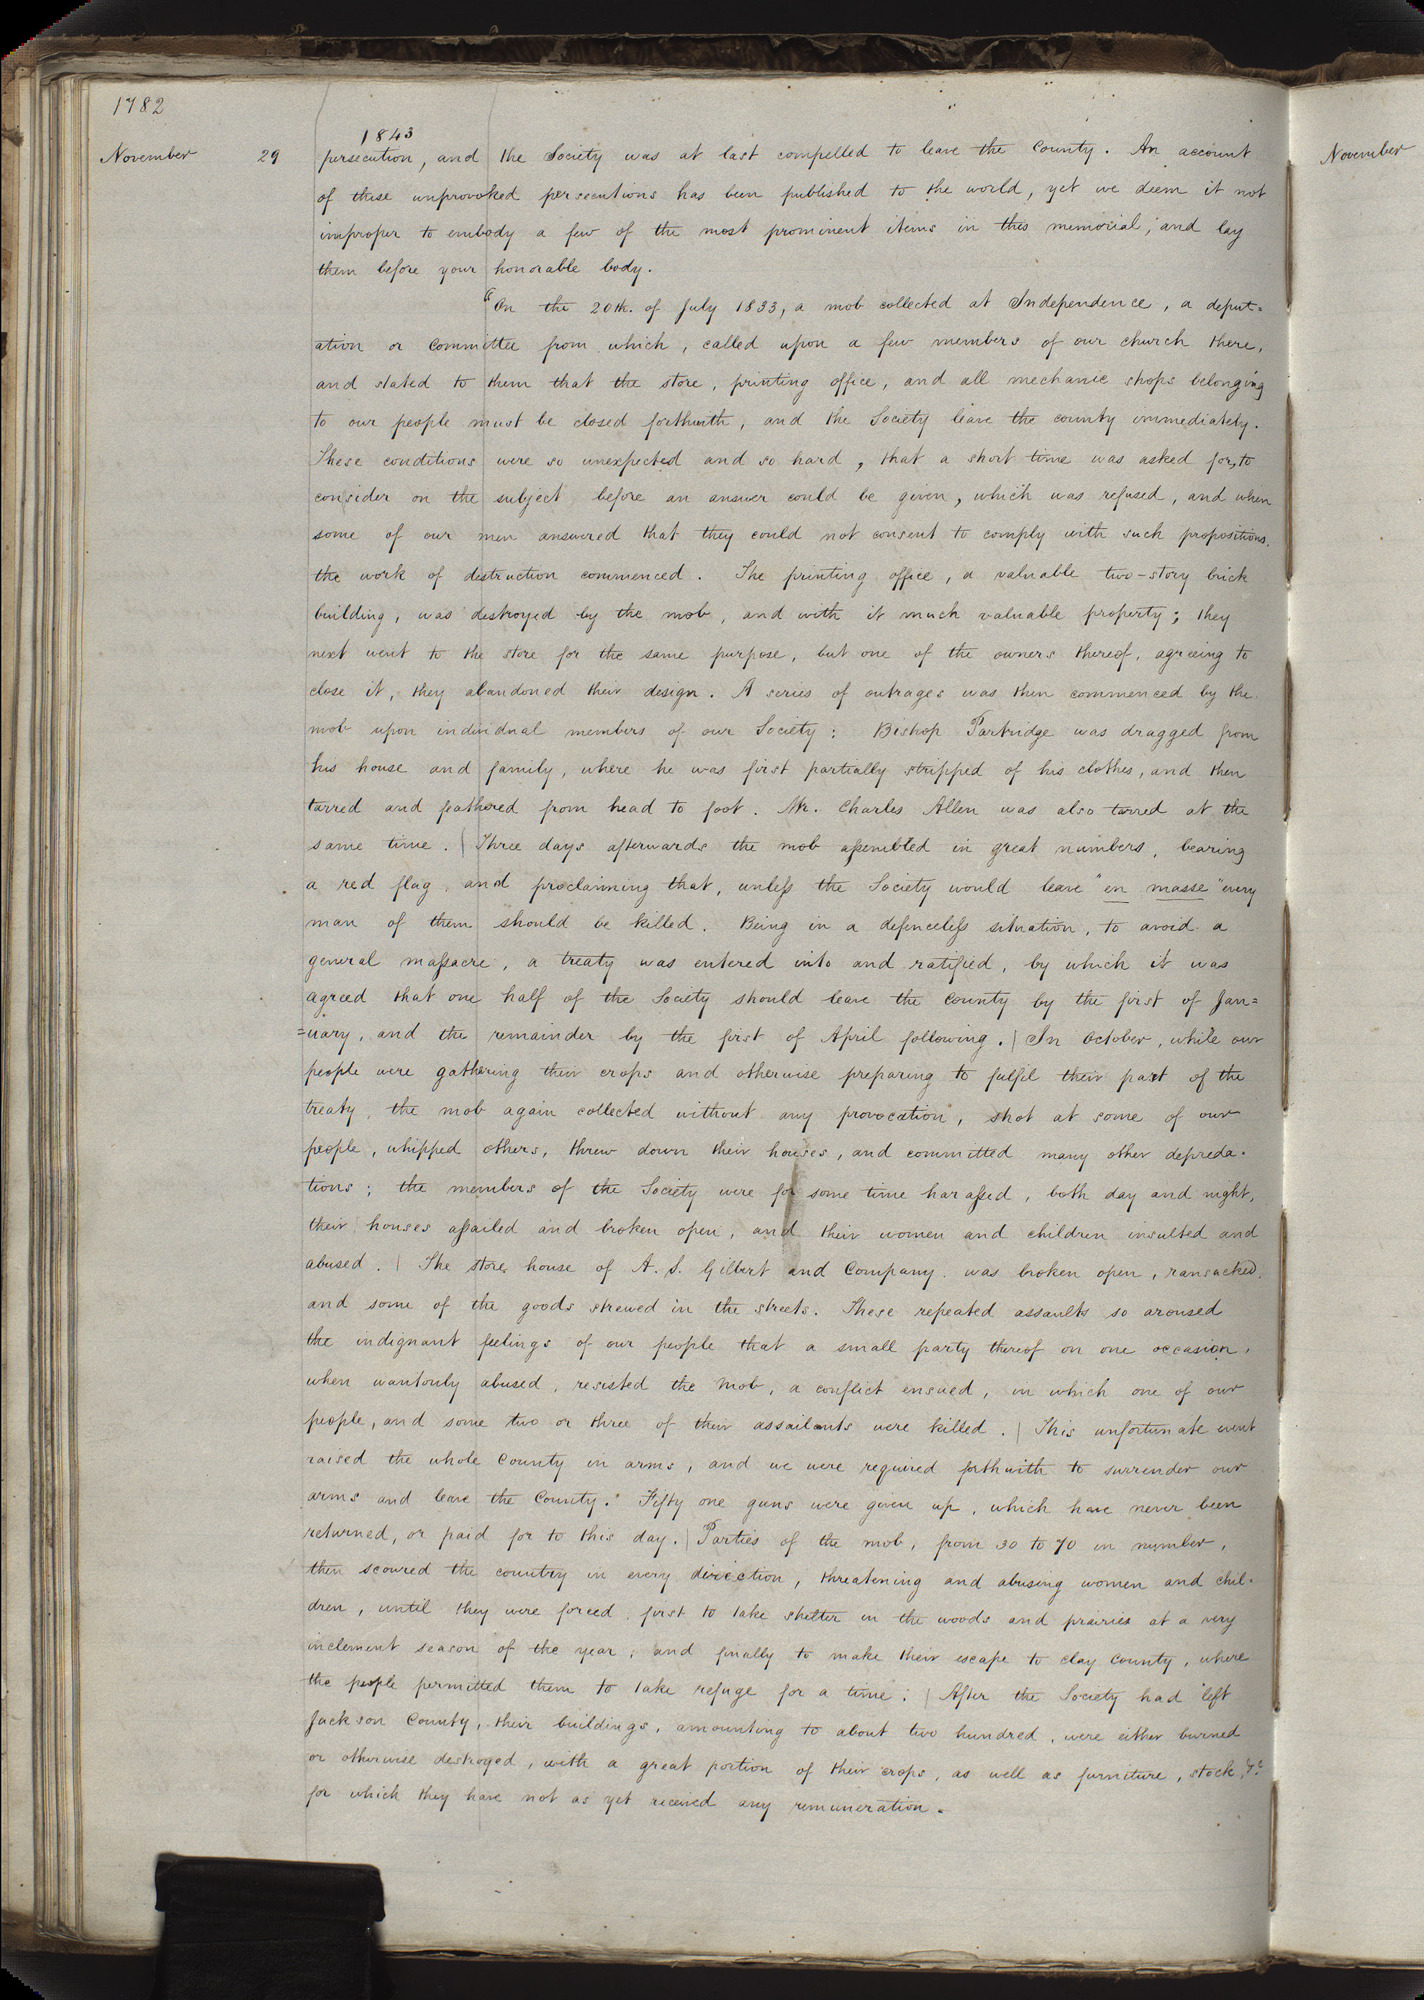 1782
1843
November 29 persecution, and the Society was at last compelled to leave the County. An account
of these unprovoked persecutions has been published to the world, yet we deem it not
improper to embody a few of the most prominent items in this memorial, and lay
them before your honorable body.
"On the 20th. of July 1833, a mob collected at Independence, a deput-
ation or committee from which, called upon a few members of our church there,
and stated to them that the store, printing office, and all mechanic shops belonging
to our people must be closed forthwith, and the Society leave the county immediately.
These conditions were so unexpected and so hard, that a short time was asked for, to
consider on the subject before an answer could be given, which was refused, and when
some of our men answered that they could not consent to comply with such propositions.
the work of destruction commenced. The printing office, a valuable two-story brick
building, was destroyed by the mob, and with it much valuable property; they
next went to the store for the same purpose, but one of the owners thereof, agreeing to
close it, they abandoned their design. A series of outrages was then commenced by the
mob upon individual members of our Society: Bishop Partridge was dragged from
his house and family, where he was first partially stripped of his clothes, and then
tarred and feathered from head to foot. Mr. Charles Allen was also tarred at the
same time. | Three days afterwards the mob assembled in great numbers, bearing
a red flag, and proclaiming that, unless the Society would leave "en masse" every
man of them should be killed. Being in a defenceless situation, to avoid a
general massacre, a treaty was entered into and ratified, by which it was
agreed that one half of the Society should leave the county by the first of Jan=
=uary, and the remainder by the first of April following. | In October, while our
people were gathering their crops and otherwise preparing to fulfil their part of the
treaty, the mob again collected without any provocation, shot at some of our
people, whipped others, threw down their houses, and committed many other depreda-
tions; the members of the Society were for some time harassed, both day and night,
their houses assailed and broken open, and their women and children insulted and
abused. | The store house of A. S. Gilbert and Company was broken open, ransacked,
and some of the goods strewed in the streets. These repeated assaults so aroused
the indignant feelings of our people that a small party thereof on one occasion,
when wantonly abused, resisted the mob, a conflict ensued, in which one of our
people, and some two or three of their assailants were killed. | This unfortunate event
raised the whole County in arms, and we were required forthwith to surrender our
arms and leave the County. Fifty one guns were given up, which have never been
returned, or paid for to this day. | Parties of the mob, from 30 to 70 in number,
then scoured the country in every direction, threatening and abusing women and chil-
dren, until they were forced, first to take shelter in the woods and prairies at a very
inclement season of the year, and finally to make their escape to Clay County, where
the people permitted them to take refuge for a time; | After the Society had left
Jackson County, their buildings, amounting to about two hundred, were either burned
or otherwise destroyed, with a great portion of their crops, as well as furniture, stock &c
for which they have not as yet received any remuneration.
November